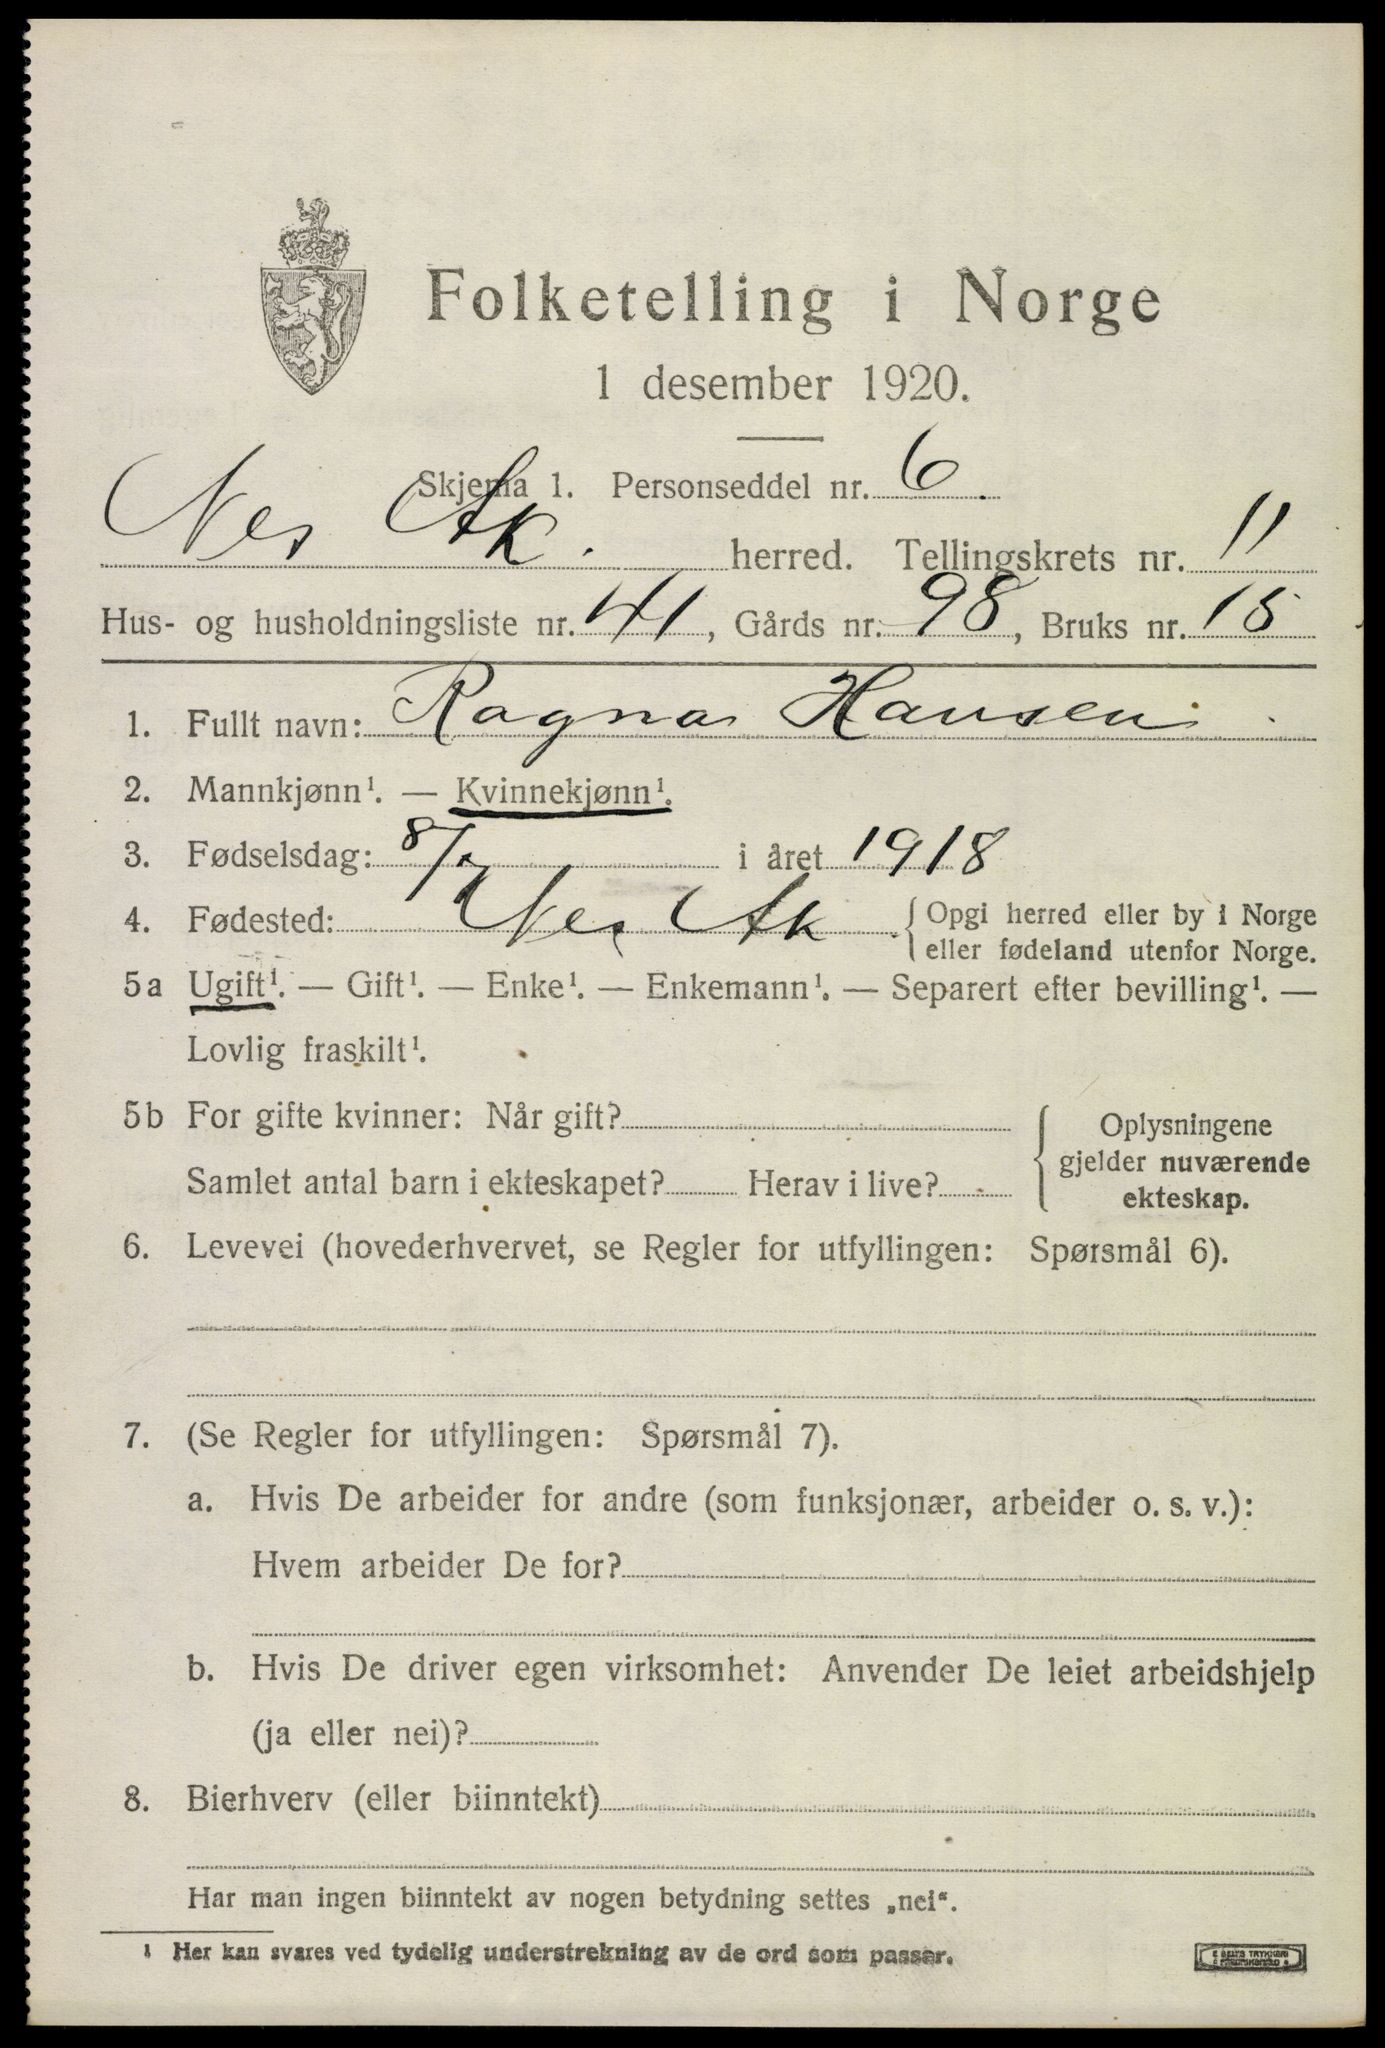 Folketelling i Norge
1 desember 1920.
Skjema 1. Personseddel nr. 6.
Nes Ak. herred. Tellingskrets nr. 11
Hus- og husholdningsliste nr. 41, Gårds nr. 98, Bruks nr. 15
1. Fullt navn: Ragna Hansen
2. Mannkjønn¹. — Kvinnekjønn¹.
3. Fødselsdag: 8/7 i året 1918
4. Fødested: Nes Ak { Opgi herred eller by i Norge
eller fødeland utenfor Norge.
5a Ugift¹. — Gift¹. — Enke¹. — Enkemann¹. — Separert efter bevilling¹. —
Lovlig fraskilt¹.
5b For gifte kvinner: Når gift? { Oplysningene
gjelder nuværende
Samlet antal barn i ekteskapet? Herav i live?
ekteskap.
6. Levevei (hovederhvervet, se Regler for utfyllingen: Spørsmål 6).
7. (Se Regler for utfyllingen: Spørsmål 7).
a. Hvis De arbeider for andre (som funksjonær, arbeider o. s. v.):
Hvem arbeider De for?
b. Hvis De driver egen virksomhet: Anvender De leiet arbeidshjelp
(ja eller nei)?
8. Bierhverv (eller biinntekt)
Har man ingen biinntekt av nogen betydning settes „nei“.
¹ Her kan svares ved tydelig understrekning av de ord som passer.